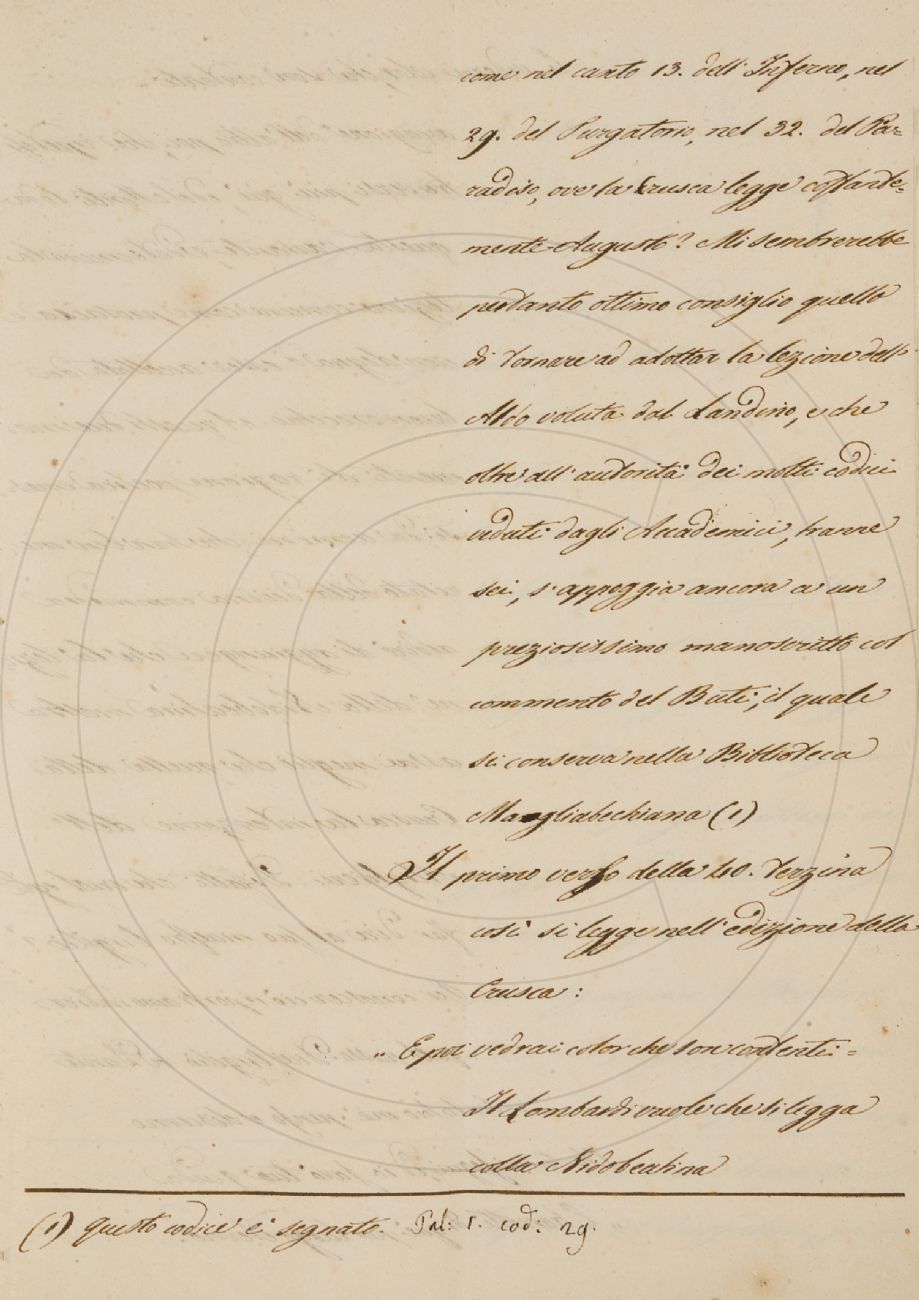 come nel canto 13. dell' Inferno, nel
29. del Purgatorio, nel 32. del Pa=
radiso, ove la Crusca legge costante=
mente Augusto? Mi sembrerebbe
pertanto ottimo consiglio quello
di tornare ad adottar la lezione dell'
Aldo voluta dal Landino, e che
oltre all' autorità dei molti codici
veduti dagli Accademici, tranne
sei, s'appoggia ancora a un
preziosissimo manoscritto col
commento del Buti, il quale
si conserva nella Biblioteca
Magliabechiana (1)
Il primo verso della 40. Terzina
così si legge nell' edizione della
Crusca:
" E poi vedrai color che son contenti =
Il Lombardi vuole che si legga
colla Nidobeatina
(1) questo codice è segnato. Pal: 1. cod: 29.